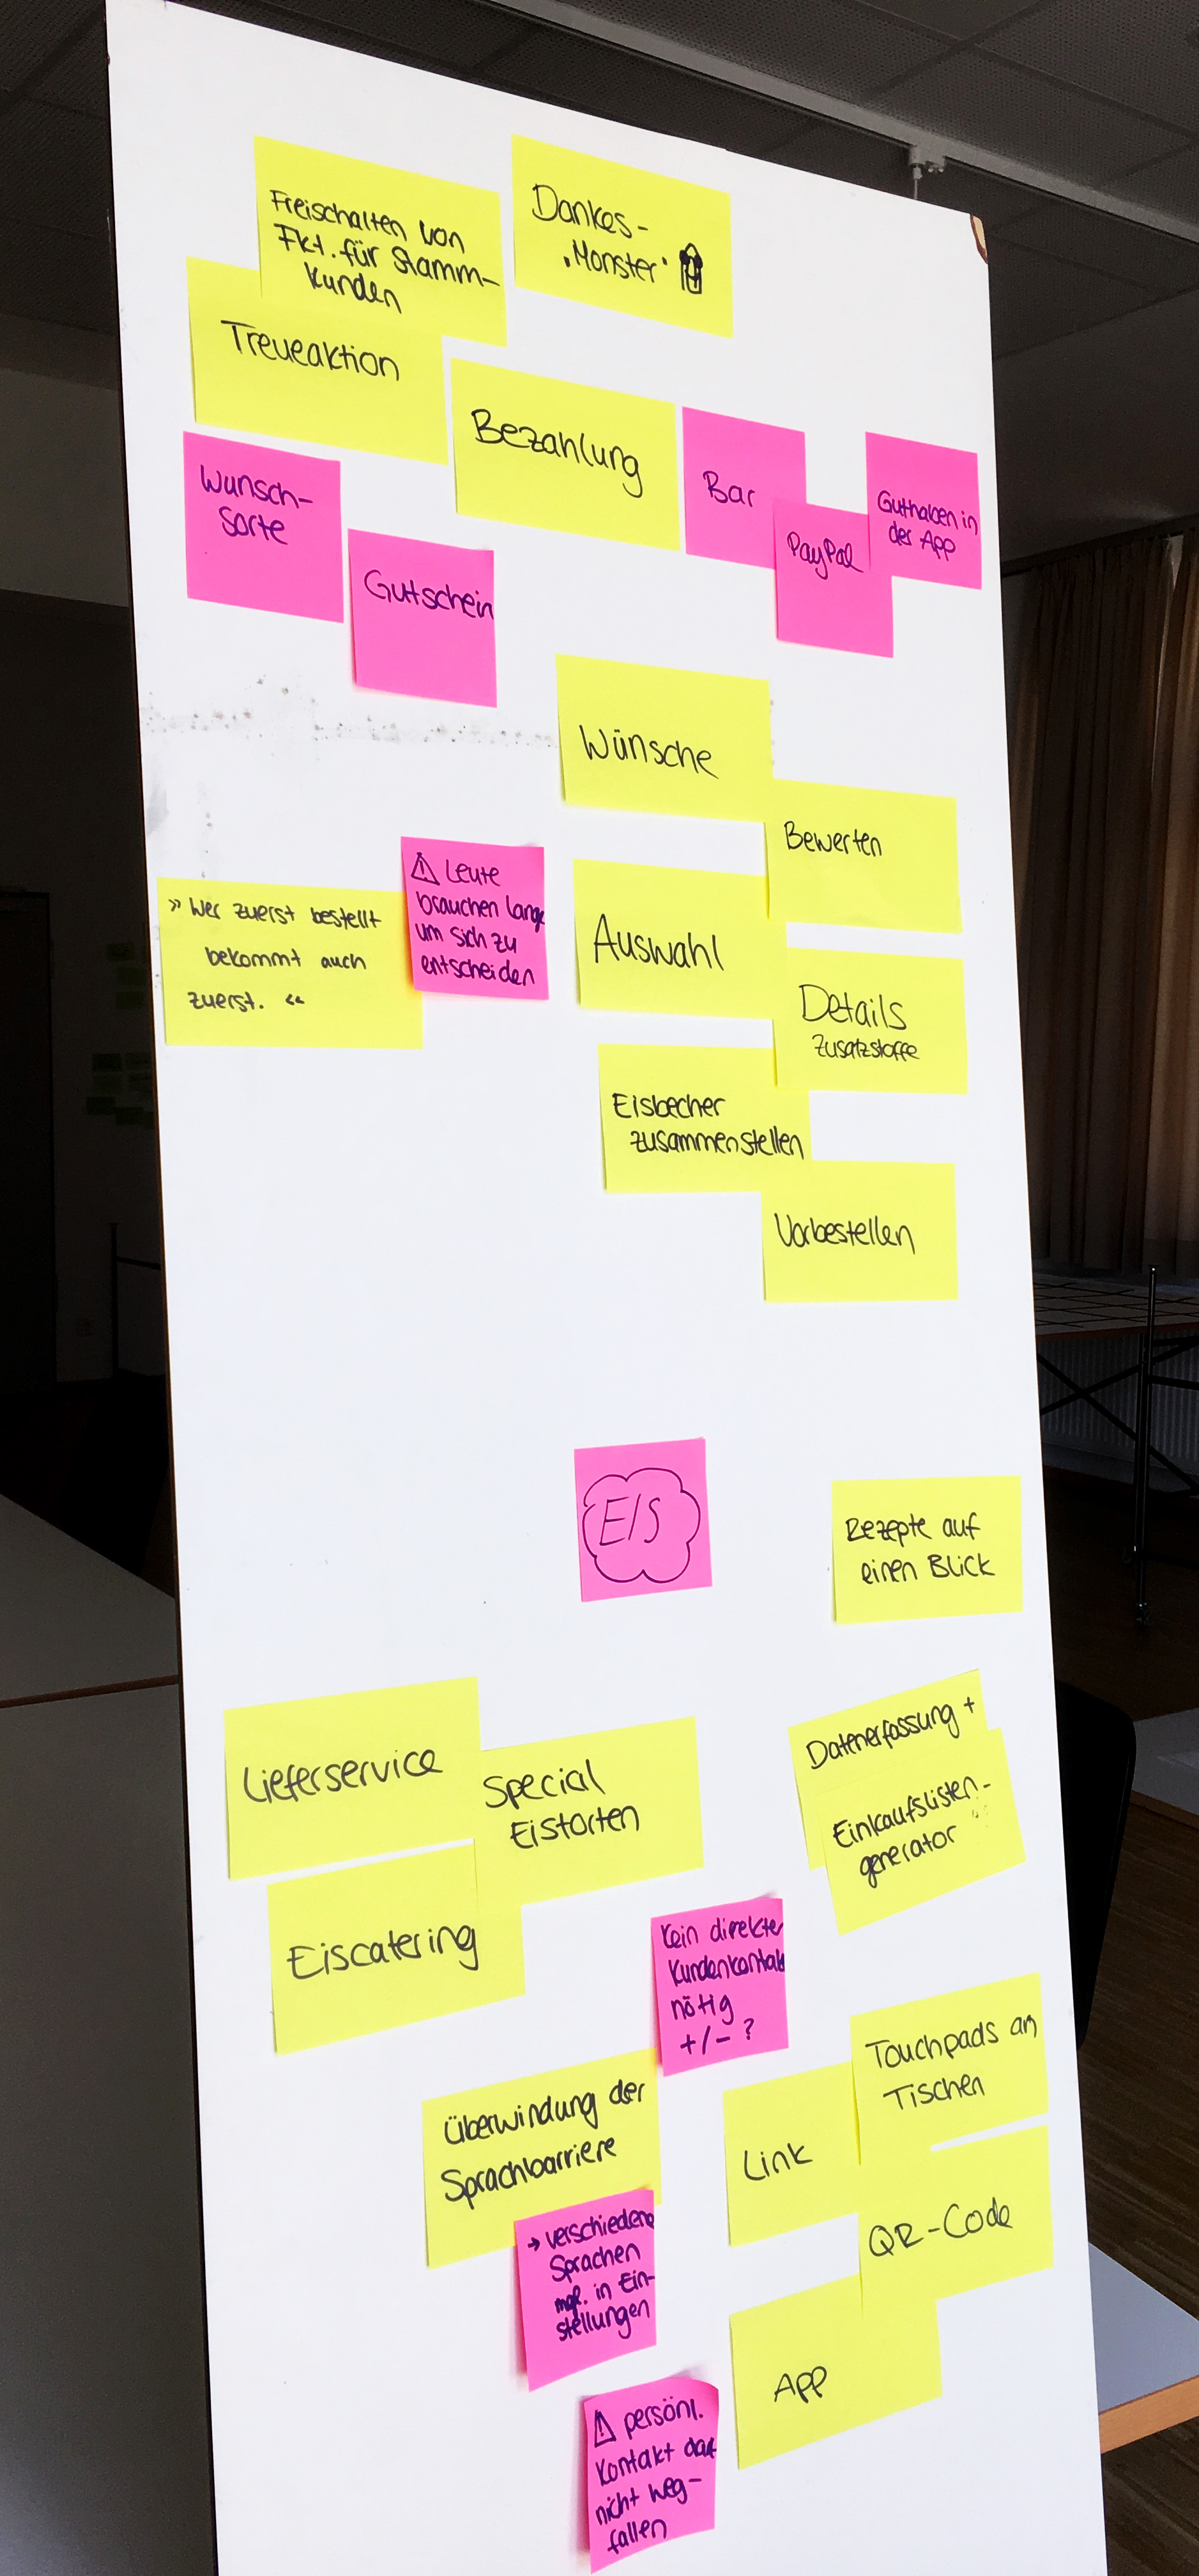 Freischalten von
Fkt. für Stamm-
kunden
Dankes-
"Monster"
Treueaktion
Bezahlung
Bar
PayPal
Guthaben in
der App
Wunsch-
sorte
Gutschein
Wünsche
Bewerten
» Wer zuerst bestellt
bekommt auch
zuerst. «
⚠ Leute
brauchen lange
um sich zu
entscheiden
Auswahl
Details
Zusatzstoffe
Eisbecher
zusammenstellen
Vorbestellen
EIS
Rezepte auf
einen Blick
Lieferservice
Special
Eistorten
Eiscatering
Datenerfassung +
Einkaufslisten-
generator
Kein direkter
Kundenkontakt
nötig
+/- ?
Touchpads an
Tischen
Link
QR-Code
App
Überwindung der
Sprachbarriere
→ verschiedene
Sprachen
mgl. in Ein-
stellungen
⚠ persönl.
Kontakt darf
nicht weg-
fallen